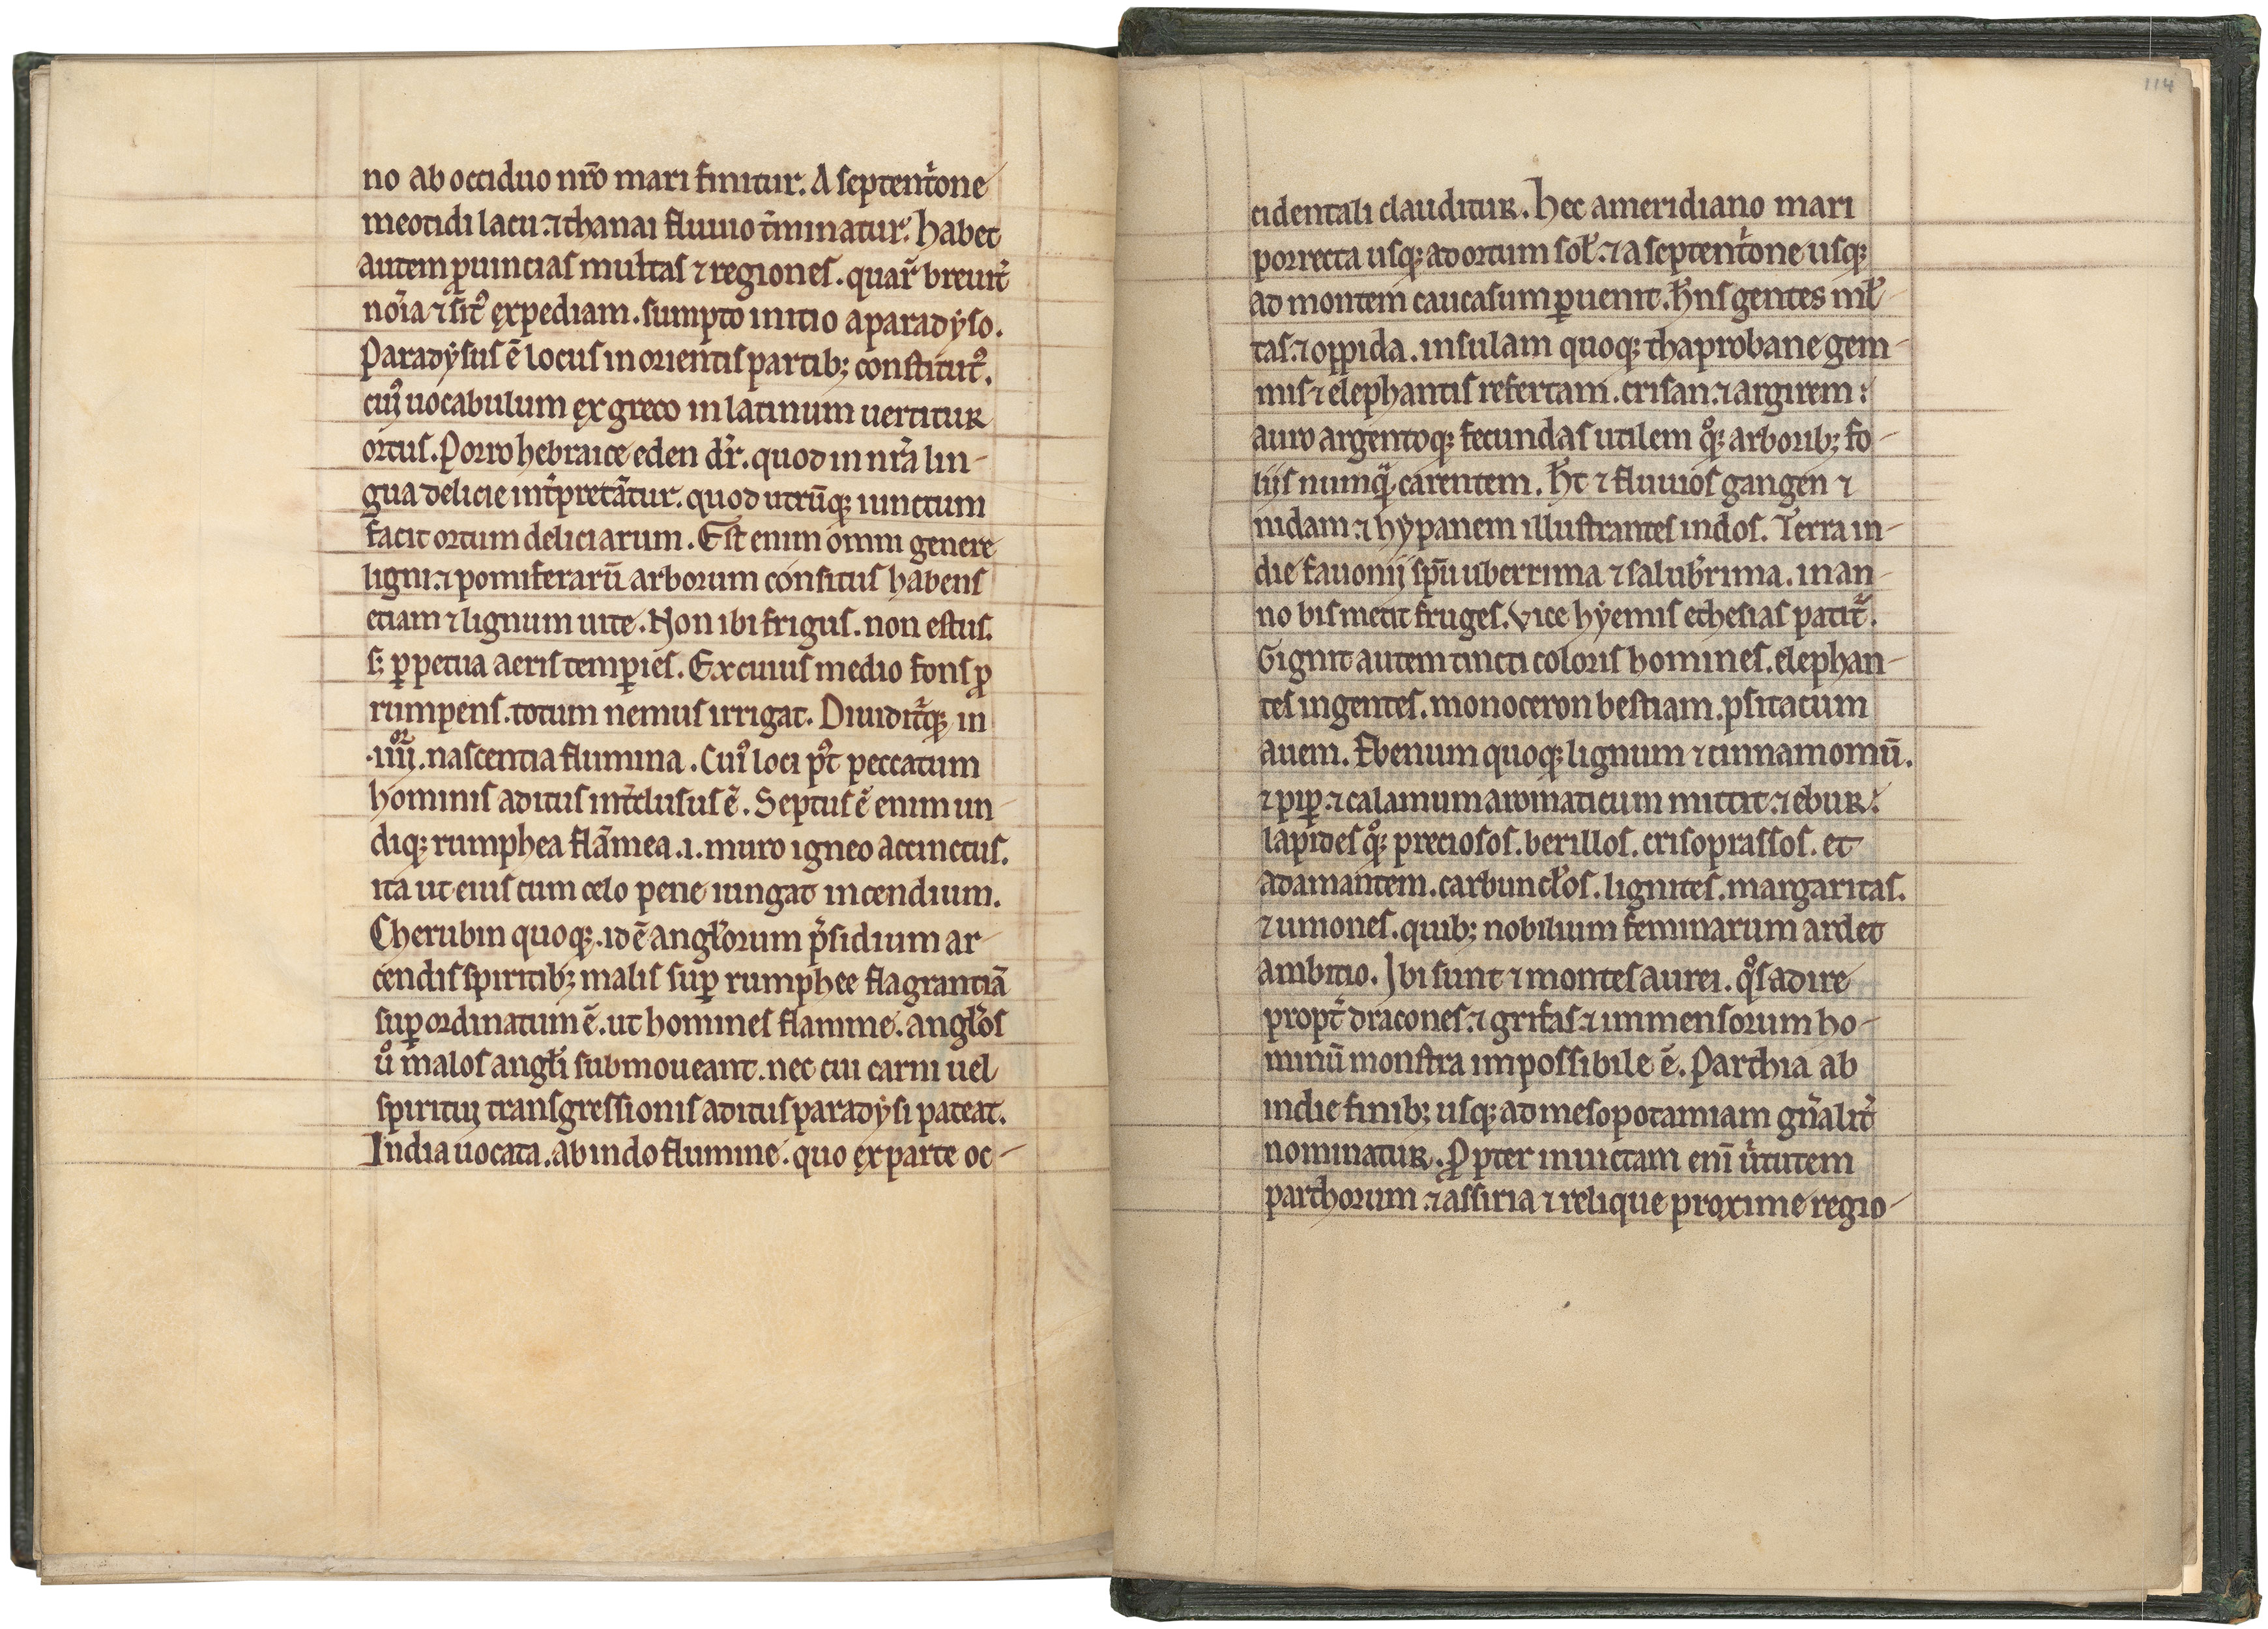 no ab occiduo nr̄o mari finitur. A septentͥone
meotidi lacu. ⁊ thanai fluuio t̄minatur. habet
autem ꝓuincias multas ⁊ regiones. quaꝝ breuit͛
noīa ⁊ sit᷒ expediam. sumpto initio a paradẏso.
Paradẏsus ē locus in orientis partib; constitut᷒.
cuiꝰ uocabulum ex greco in latinum uertitur
ortus. Porro hebraice eden dr̄. quod in nr̄a lin-
gua delicie int͛pretātur. quod utrūq; iunctum
facit ortum deliciarum. Est enim omni genere
ligni. ⁊ pomiferarū arborum consitus habens
etiam ⁊ lignum uite. Non ibi frigus. non estus.
s; ꝑpetua aeris temꝑies. Ex cuius medio fons ꝓ
rumpens. totum nemus irrigat. Diuidit᷑q; in
.iiijᵒʳ. nascentia flumina. Cuiꝰ loci pꝰt peccatum
hominis aditus int͛clusus ē. Septus ē enim un-
diq; rumphea flāmea .i. muro igneo accinctus.
ita ut eius cum celo pene iungat incendium.
Cherubin quoq;. id ē angl̄orum p̄sidium ar-
cendis spiritib; malis suꝑ rumphee flagrantiā
suꝑ ordinatum ē. ut homines flamme. angl̄os
uͦ malos angl̄i submoueant. nec cui carni uel
spiritui transgressionis aditus paradẏsi pateat.
India uocata. ab indo flumine. quo ex parte oc-
114
cidentali clauditur. Hec a meridiano mari
porrecta usq; ad ortum sol̄. ⁊ a septentͥone usq;
ad montem caucasum ꝑuenit. Hn̄s gentes ml̄-
tas. ⁊ oppida. insulam quoq; thaprobane gem-
mis ⁊ elephantis refertam. crisan. ⁊ argirem:
auro argentoq; fecundas utilem qͦq; arborib; fo-
liis numqͣ carentem. Ht̄ ⁊ fluuios gangen ⁊
nidam. ⁊ hypanem illustrantes indos. Terra in-
die fauonij sp̄u uberrima ⁊ salub͛rima. in an-
no bis metit fruges. vice hẏemis ethesias patit᷑.
Gignit autem tincti coloris homines. elephan-
tes ingentes. monoceron bestiam. psitacum
auem. Ebenum quoq; lignum ⁊ cinnamomū.
⁊ piꝑ. ⁊ calamum aromaticum mittit. ⁊ ebur:
lapides qͦq; preciosos. berillos. crisoprassos. et
adamantem. carbuncl̄os. lignites. margaritas.
⁊ uniones. quib; nobilium feminarum ardet
ambitio. Ibi sunt ⁊ montes aurei. qͦs adire
propt͛ dracones. ⁊ grifas ⁊ immensorum ho-
minū monstra impossibile ē. Parthia ab
indie finib; usq; ad mesopotamiam gn̄alit͛
nominatur. Ꝓpter inuictam enī uͥtutem
parthorum. ⁊ assiria ⁊ relique proxime regio-